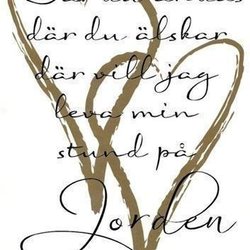 där du älskar
där vill jag
leva min
stund på
Jorden